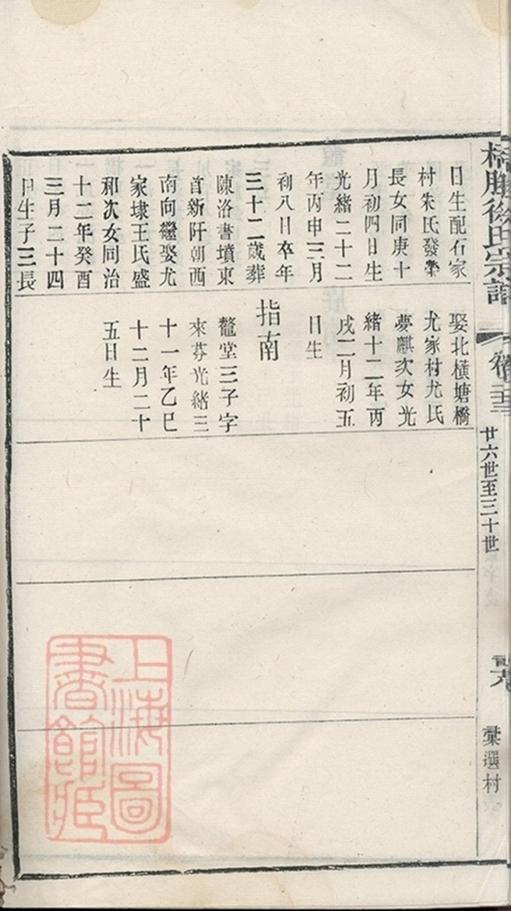 日生配石家
村朱氏發
長女同庚十
月初四日生
光緒二十二
年丙申三月
初八日卒年
三十二歲葬
陳洛書墳東
首新阡朝西
南向繼娶尤
家埭王氏盛
和次女同治
十二年癸酉
三月二十四
日生子三長
娶北橫塘橋
尤家村尤氏
夢麒次女光
緒十二年丙
戌二月初五
日生
指南
鼇堂三子字
來芬光緒三
十一年乙巳
十二月二十
五日生
徐氏宗譜
卷
廿六世至三十世
村
上海圖
書館